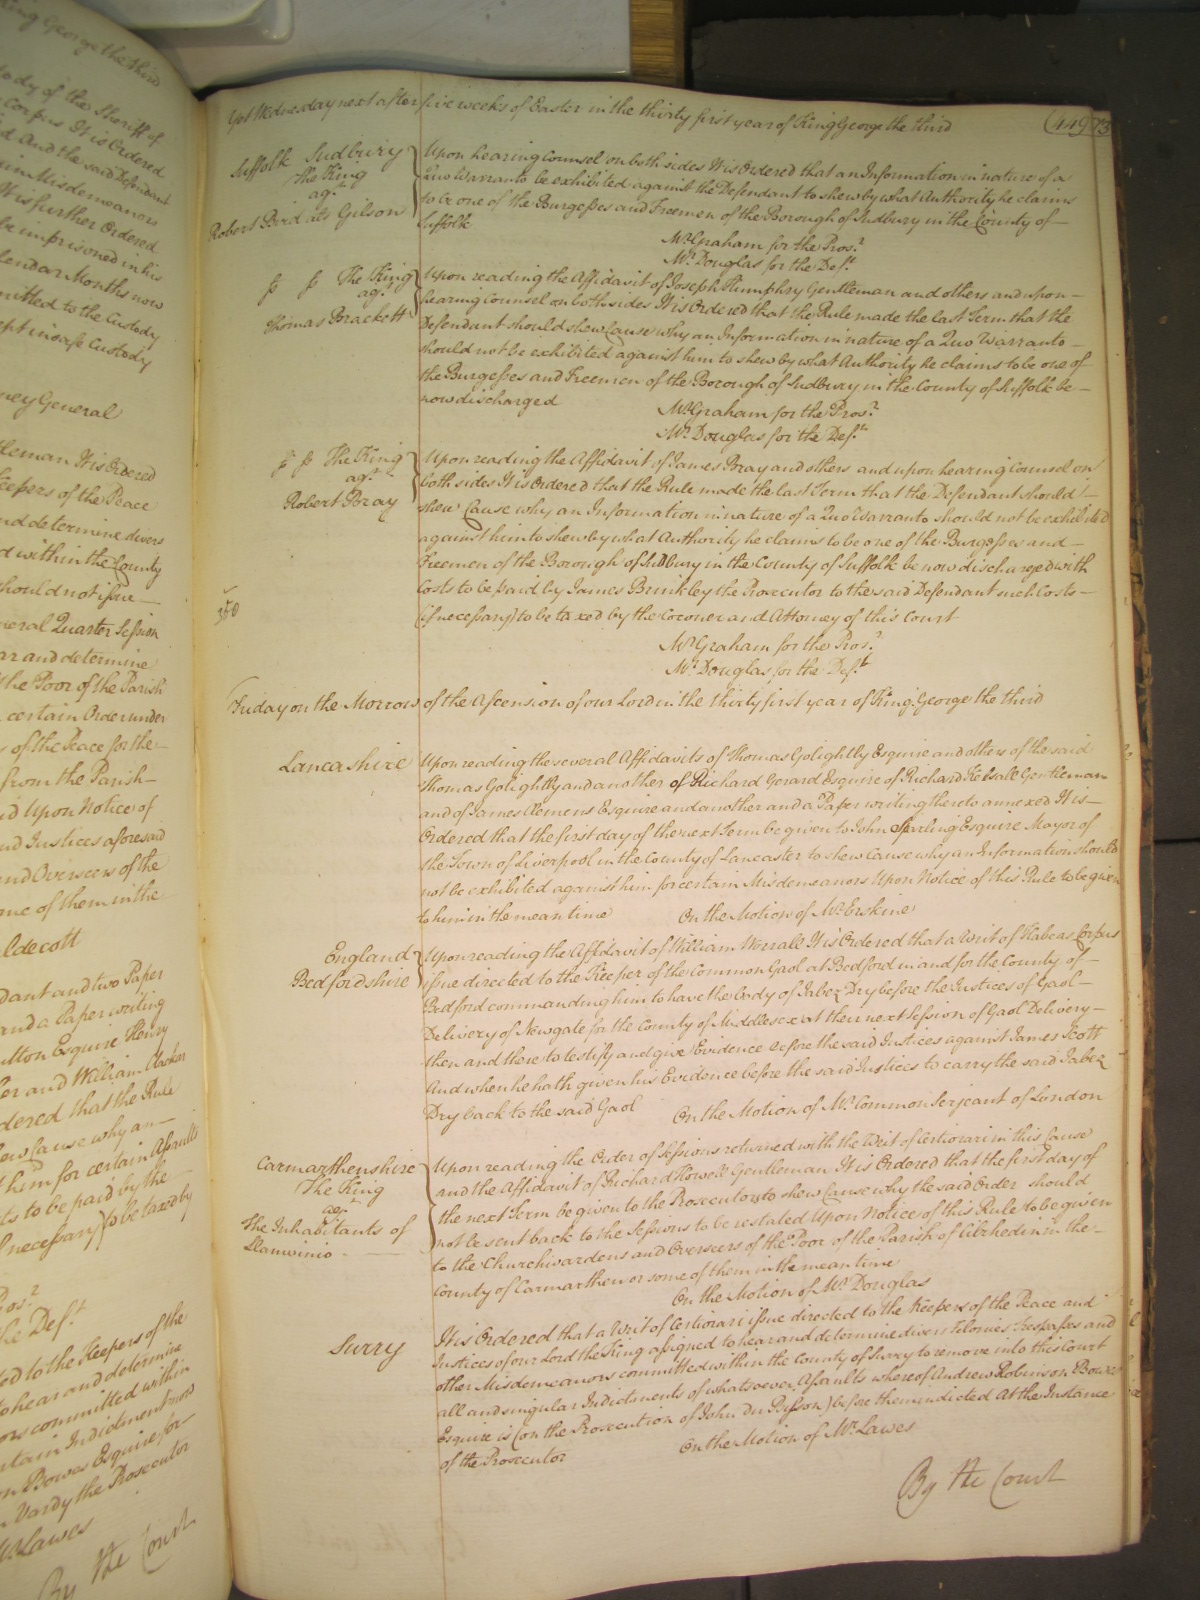 King George the third
tody of the Sheriff of
Corpus It is Ordered
And the said Defendant
Misdemeanors
It is further Ordered
be imprisoned in his
lendar Months now
mitted to the Custody
kept in safe Custody
ney General
tleman It is Ordered
Keepers of the Peace
nd determine divers
d within the County
should not issue
neral Quarter Session
ar and determine
the Poor of the Parish
certain Order under
s of the Peace for the
from the Parish
d Upon Notice of
and Justices aforesaid
and Overseers of the
ome of them in the
ldecott
dant and two Paper
and a Paper writing
ulton Esquire Henry
er and William
dered that the Rule
shew Cause why an
him for certain Assaults
ts to be paid by the
f necessary) to be taxed by
Pros.r
the Def.t
ted to the Keepers of the
to hear and determine
ors committed within
certain Indictment
Bowes Esquire for
Vardy the Prosecutor
Mr Lawes
By the Court
Yet Wednesday next after five weeks of Easter in the thirty first year of King George the third
449 73
Suffolk Sudbury
The King
ag.t
Robert Bird als Gilson
Upon hearing Counsel on both sides It is Ordered that an Information in nature of a
Quo Warranto be exhibited against the Defendant to shew by what Authority he claims
to be one of the Burgesses and Freemen of the Borough of Sudbury in the County of
Suffolk
Mr. Graham for the Pros.r
Mr. Douglas for the Def.t
The King
ag.t
Thomas Brackett
Upon reading the Affidavit of Joseph Humphry Gentleman and others and upon
hearing Counsel on both sides It is Ordered that the Rule made the last Term that the
Defendant should shew Cause why an Information in nature of a Quo Warranto
should not be exhibited against him to shew by what Authority he claims to be one of
the Burgesses and Freemen of the Borough of Sudbury in the County of Suffolk be
now discharged
Mr. Graham for the Pros.r
Mr. Douglas for the Def.t
The King
ag.t
Robert Bray
Upon reading the Affidavit of James Bray and others and upon hearing Counsel on
both sides It is Ordered that the Rule made the last Term that the Defendant should
shew Cause why an Information in nature of a Quo Warranto should not be exhibited
against him to shew by what Authority he claims to be one of the Burgesses and
Freemen of the Borough of Sudbury in the County of Suffolk be now discharged with
Costs to be paid by James Brinkley the Prosecutor to the said Defendant such Costs
(if necessary) to be taxed by the Coroner and Attorney of this Court
Mr. Graham for the Pros.r
Mr. Douglas for the Def.t
Friday on the Morrow of the Ascension of our Lord in the thirty first year of King George the third
Lancashire
Upon reading the several Affidavits of Thomas Golightly Esquire and others of the said
Thomas Golightly and another of Richard Gerard Esquire of Richard Kelsall Gentleman
and of James Clemens Esquire and another and a Paper writing thereto annexed It is
Ordered that the first day of the next Term be given to John Sparling Esquire Mayor of
the Town of Liverpool in the County of Lancaster to shew Cause why an Information should
not be exhibited against him for certain Misdemeanors Upon Notice of this Rule to be given
to him in the mean time
On the Motion of Mr. Erskine
England
Bedfordshire
Upon reading the Affidavit of William Worrall It is Ordered that a Writ of Habeas Corpus
issue directed to the Keeper of the Common Gaol at Bedford in and for the County of
Bedford commanding him to have the body of Jabez Dry before the Justices of Gaol
Delivery of Newgate for the County of Middlesex at their next Session of Gaol Delivery
then and there to testify and give Evidence before the said Justices against James Scott
And when he hath given his Evidence before the said Justices to carry the said Jabez
Dry back to the said Gaol
On the Motion of Mr. Common Serjeant of London
Carmarthenshire
The King
ag.t
The Inhabitants of
Llanwinio
Upon reading the Order of Sessions returned with the Writ of Certiorari in this Cause
and the Affidavit of Richard Howell Gentleman It is Ordered that the first day of
the next Term be given to the Prosecutors to shew Cause why the said Order should
not be sent back to the Sessions to be restated Upon Notice of this Rule to be given
to the Churchwardens and Overseers of the Poor of the Parish of Cilrhedin in the
County of Carmarthen or some of them in the mean time
On the Motion of Mr. Douglas
Surry
It is Ordered that a Writ of Certiorari issue directed to the Keepers of the Peace and
Justices of our Lord the King assigned to hear and determine divers Felonies Trespasses and
other Misdemeanors committed within the County of Surry to remove into this Court
all and singular Indictments of whatsoever Assaults whereof Andrew Robinson Bowes
Esquire is (on the Prosecution of John Du Bisson) before them indicted At the Instance
of the Prosecutor
On the Motion of Mr. Lawes
By the Court